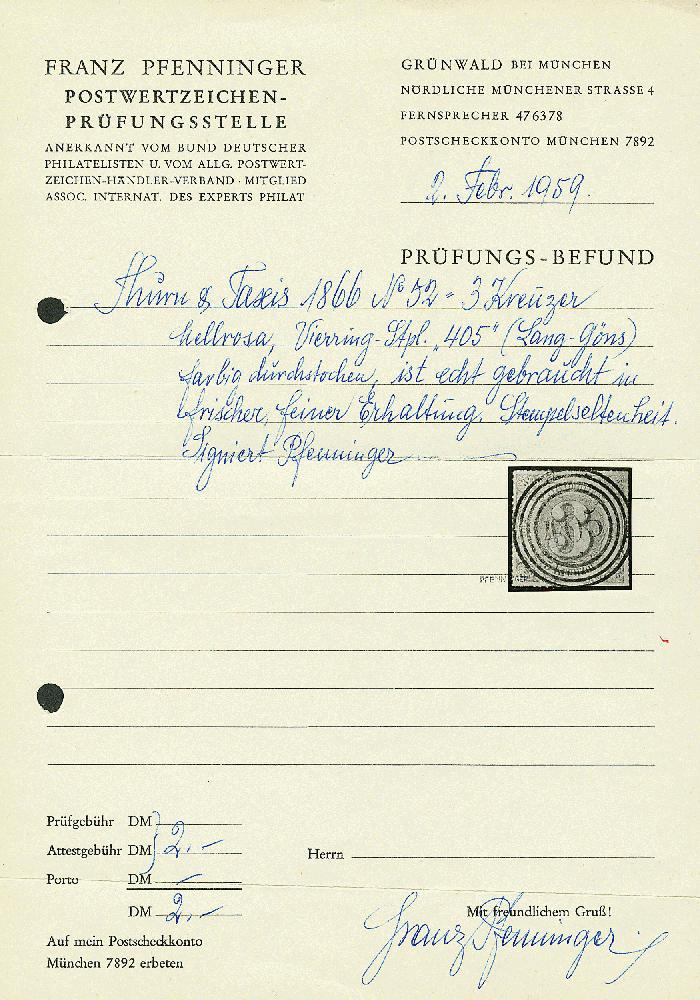 FRANZ PFENNINGER
POSTWERTZEICHEN-
PRÜFUNGSSTELLE
ANERKANNT VOM BUND DEUTSCHER
PHILATELISTEN U. VOM ALLG. POSTWERT-
ZEICHEN-HÄNDLER-VERBAND · MITGLIED
ASSOC. INTERNAT. DES EXPERTS PHILAT
GRÜNWALD BEI MÜNCHEN
NÖRDLICHE MÜNCHENER STRASSE 4
FERNSPRECHER 476378
POSTSCHECKKONTO MÜNCHEN 7892
2. Febr. 1959.
PRÜFUNGS-BEFUND
Thurn & Taxis 1866 No 52 = 3 Kreuzer
hellrosa, Vierring-Stpl. „405" (Lang-Göns)
farbig durchstochen, ist echt gebraucht in
frischer, feiner Erhaltung. Stempelseltenheit.
Signiert Pfenninger
405
Prüfgebühr DM
Attestgebühr DM 2.-
Porto DM -
DM 2.-
Auf mein Postscheckkonto
München 7892 erbeten
Herrn
Mit freundlichem Gruß!
Franz Pfenninger